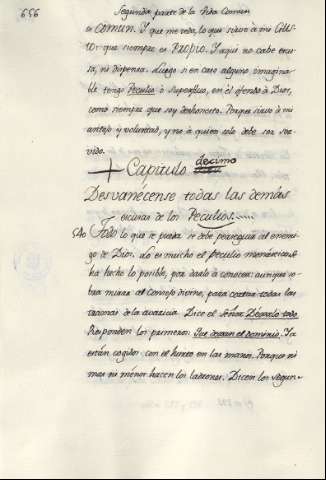 656
Segunda parte de la Vida Comun
es COMUN. Y que me veda, lo que sirve à mi GUS-
TO: que siempre es PROPIO. Y aqui no cabe escu-
sa, ni dispensa. Luego si en caso alguno imagina-
ble tengo Peculio ò superfluo, en èl ofendo à Dios,
como siempre que soy deshonesto. Porque sirvo à mi
antojo y voluntad, y no à quien solo debe ser ser-
vido.
Capitulo decimo
Desvanécense todas las demás
escusas de los Peculios.
Todo lo que se pueda se debe perseguir al enemi-
go de Dios. No es mucho el peculio monástico
ha hecho lo posible, por darlo à conocer: aunque so-
bra mirar al Consejo divino, para cortar todas las
raciones de la avaricia. Dice el Señor Déxalo todo.
Responden los primeros. Que dexan el dominio. Ya
están cogidos con el hurto en las manos. Porque ni
mas ni menos hacen los ladrones. Dicen los segun-